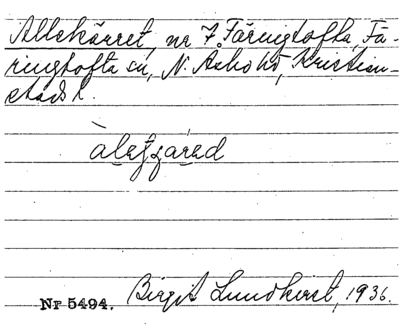 Allekärret, nr 7 Färingtofta, Fä-
ringtofta sn, N. Åsbo hd, Kristian-
stads l.
Nr 5494. Birgit Lundkvist, 1936.